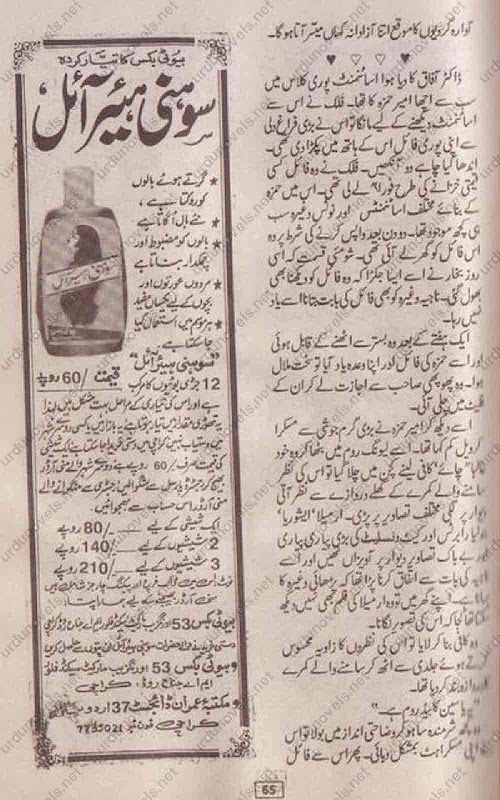 آوارہ گردیوں کا موقع اتنا آزادانہ کہاں میسر آتا ہوگا۔
ڈاکٹر آفاق کا دیا ہوا اسائنمنٹ پوری کلاس میں
سب سے اچھا امیر حمزہ کا تھا۔ فلک نے اس سے
اسائنمنٹ دیکھنے کے لیے مانگا تو اس نے بڑی فراخ دلی
سے اپنی پوری فائل اس کے ہاتھ میں پکڑا دی تھی۔
اندھا کیا چاہے دو آنکھیں۔ فلک نے وہ فائل کسی
قیمتی خزانے کی طرح فوراً لے لی تھی۔ اس میں حمزہ
کے بنائے مختلف اسائنمنٹس اور نوٹس وغیرہ سب
ہی کچھ موجود تھا۔ دو دن بعد واپس کرنے کی شرط پر وہ
اس فائل کو گھر لے آئی تھی۔ شومئی قسمت کہ اسی
روز بخار نے اسے ایسا جکڑا کہ وہ فائل کو دیکھنا بھی
بھول گئی۔ ناجیہ وغیرہ کو بھی فائل کی بابت بتانا اسے یاد
نہیں رہا۔
ایک ہفتے کے بعد وہ بستر سے اٹھنے کے قابل ہوئی
اور اسے حمزہ کی فائل اور اپنا وعدہ یاد کیا تو سخت ملال
ہوا۔ وہ پھوپھی صاحب سے اجازت لے کر ان کے
فلیٹ میں چلی آئی۔
اسے دیکھ کر امیر حمزہ نے بڑی گرم جوشی سے مسکرا
کر ویل کم کہا تھا۔ اسے لیونگ روم میں بٹھا کر وہ خود
چائے کافی لینے کچن میں چلا گیا تو اس کی نظر
سامنے والے کمرے کے کھلے دروازے سے نظر آتی
دیوار پر لگی مختلف تصاویر پر پڑی۔ ارمیلا ایشوریا
جولیا رابرٹس اور کیٹ ونسلیٹ کی بڑی پیاری پیاری
اور بے باک تصاویر دیوار پر آویزاں تھیں اور اسے
کی بات سے اتفاق کرنا پڑا تھا کہ پڑھائی وغیرہ کا
اپنے گھر میں تو وہ ارمیلا کی فلم بھی نہیں دیکھ
سکتا تھا کجا کہ اس کی تصویر لگاتا۔
وہ کافی بنا کر لایا تو اس کی نظروں کا زاویہ محسوس
کرتے ہوئے جلدی سے اٹھ کر سامنے والے کمرے
کا دروازہ بند کر دیا تھا۔
یہ یاسین کا بیڈ روم ہے۔"
وہ کچھ شرمندہ سا ہو کر وضاحتی انداز میں بولا تو اس
نے اپنی مسکراہٹ بمشکل دبائی۔ پھر اس سے فائل
بیوٹی بکس کا تیار کردہ
سوہنی ہیئر آئل
★ گرتے ہوئے بالوں
کو روکتا ہے،
★ نئے بال اگاتا ہے
★ بالوں کو مضبوط اور
چمکدار بناتا ہے
★ مردوں عورتوں اور
بچوں کے لیے یکساں مفید
★ ہر موسم میں استعمال کیا
جا سکتا ہے۔
سوہنی ہیئر آئل
قیمت /60 روپے
"سوہنی ہیئر آئل"
12 جڑی بوٹیوں کا مرکب
ہے اور اس کی تیاری کے مراحل بہت مشکل ہیں لہٰذا
یہ تھوڑی مقدار میں تیار ہوتا ہے یہ بازار میں یا کسی دوسرے شہر
میں دستیاب نہیں کراچی میں دستی خریدا جا سکتا ہے ایک شیشی
کی قیمت صرف /60 روپے ہے دوسرے شہر والے منی آرڈر
بھیج کر رجسٹرڈ پارسل سے منگوالیں رجسٹری سے منگوانے والے
منی آرڈر اس حساب سے بھجوائیں
ایک شیشی کے لیے /80 روپے
2 شیشیوں کے لیے /140 روپے
3 شیشیوں کے لیے /210 روپے
نوٹ: اس میں ڈاک خرچ اور پیکنگ چارجز شامل ہیں
منی آرڈر بھیجنے کے لیے ہمارا پتہ
بیوٹی بکس 53 اورنگزیب مارکیٹ سیکنڈ فلور ایم اے جناح روڈ کراچی
دستی خریدنے والے حضرات سوہنی ہیئر آئل ان پتوں سے حاصل کریں
• بیوٹی بکس 53 اورنگزیب مارکیٹ سیکنڈ فلور
ایم اے جناح روڈ، کراچی
• مکتبہ عمران ڈائجسٹ 37 اردو بازار
کراچی فون نمبر 7735021
65
urdunovels.net